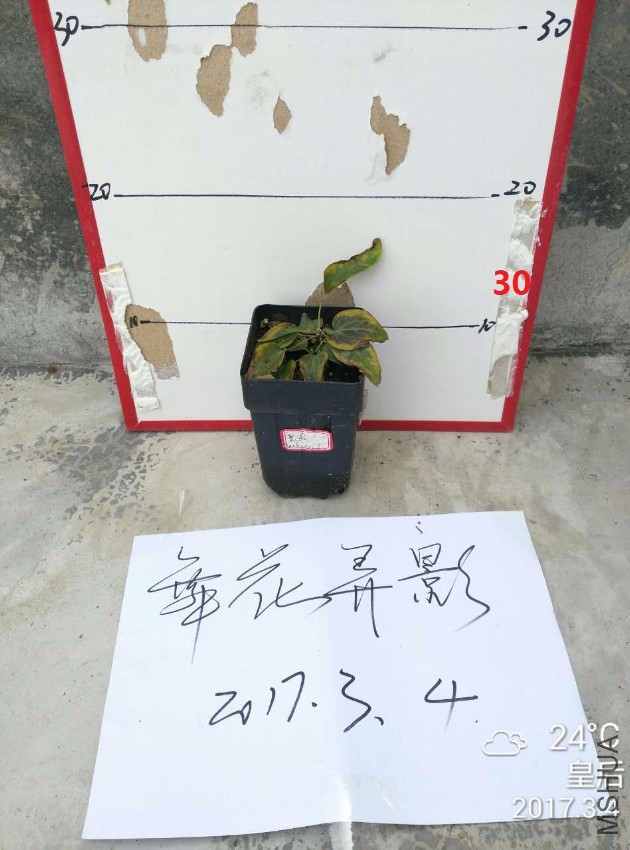 30 30
20 20
30
10 10
花弄影
2017.3.4
24°C
皇后
2017.3.4
MSHUA